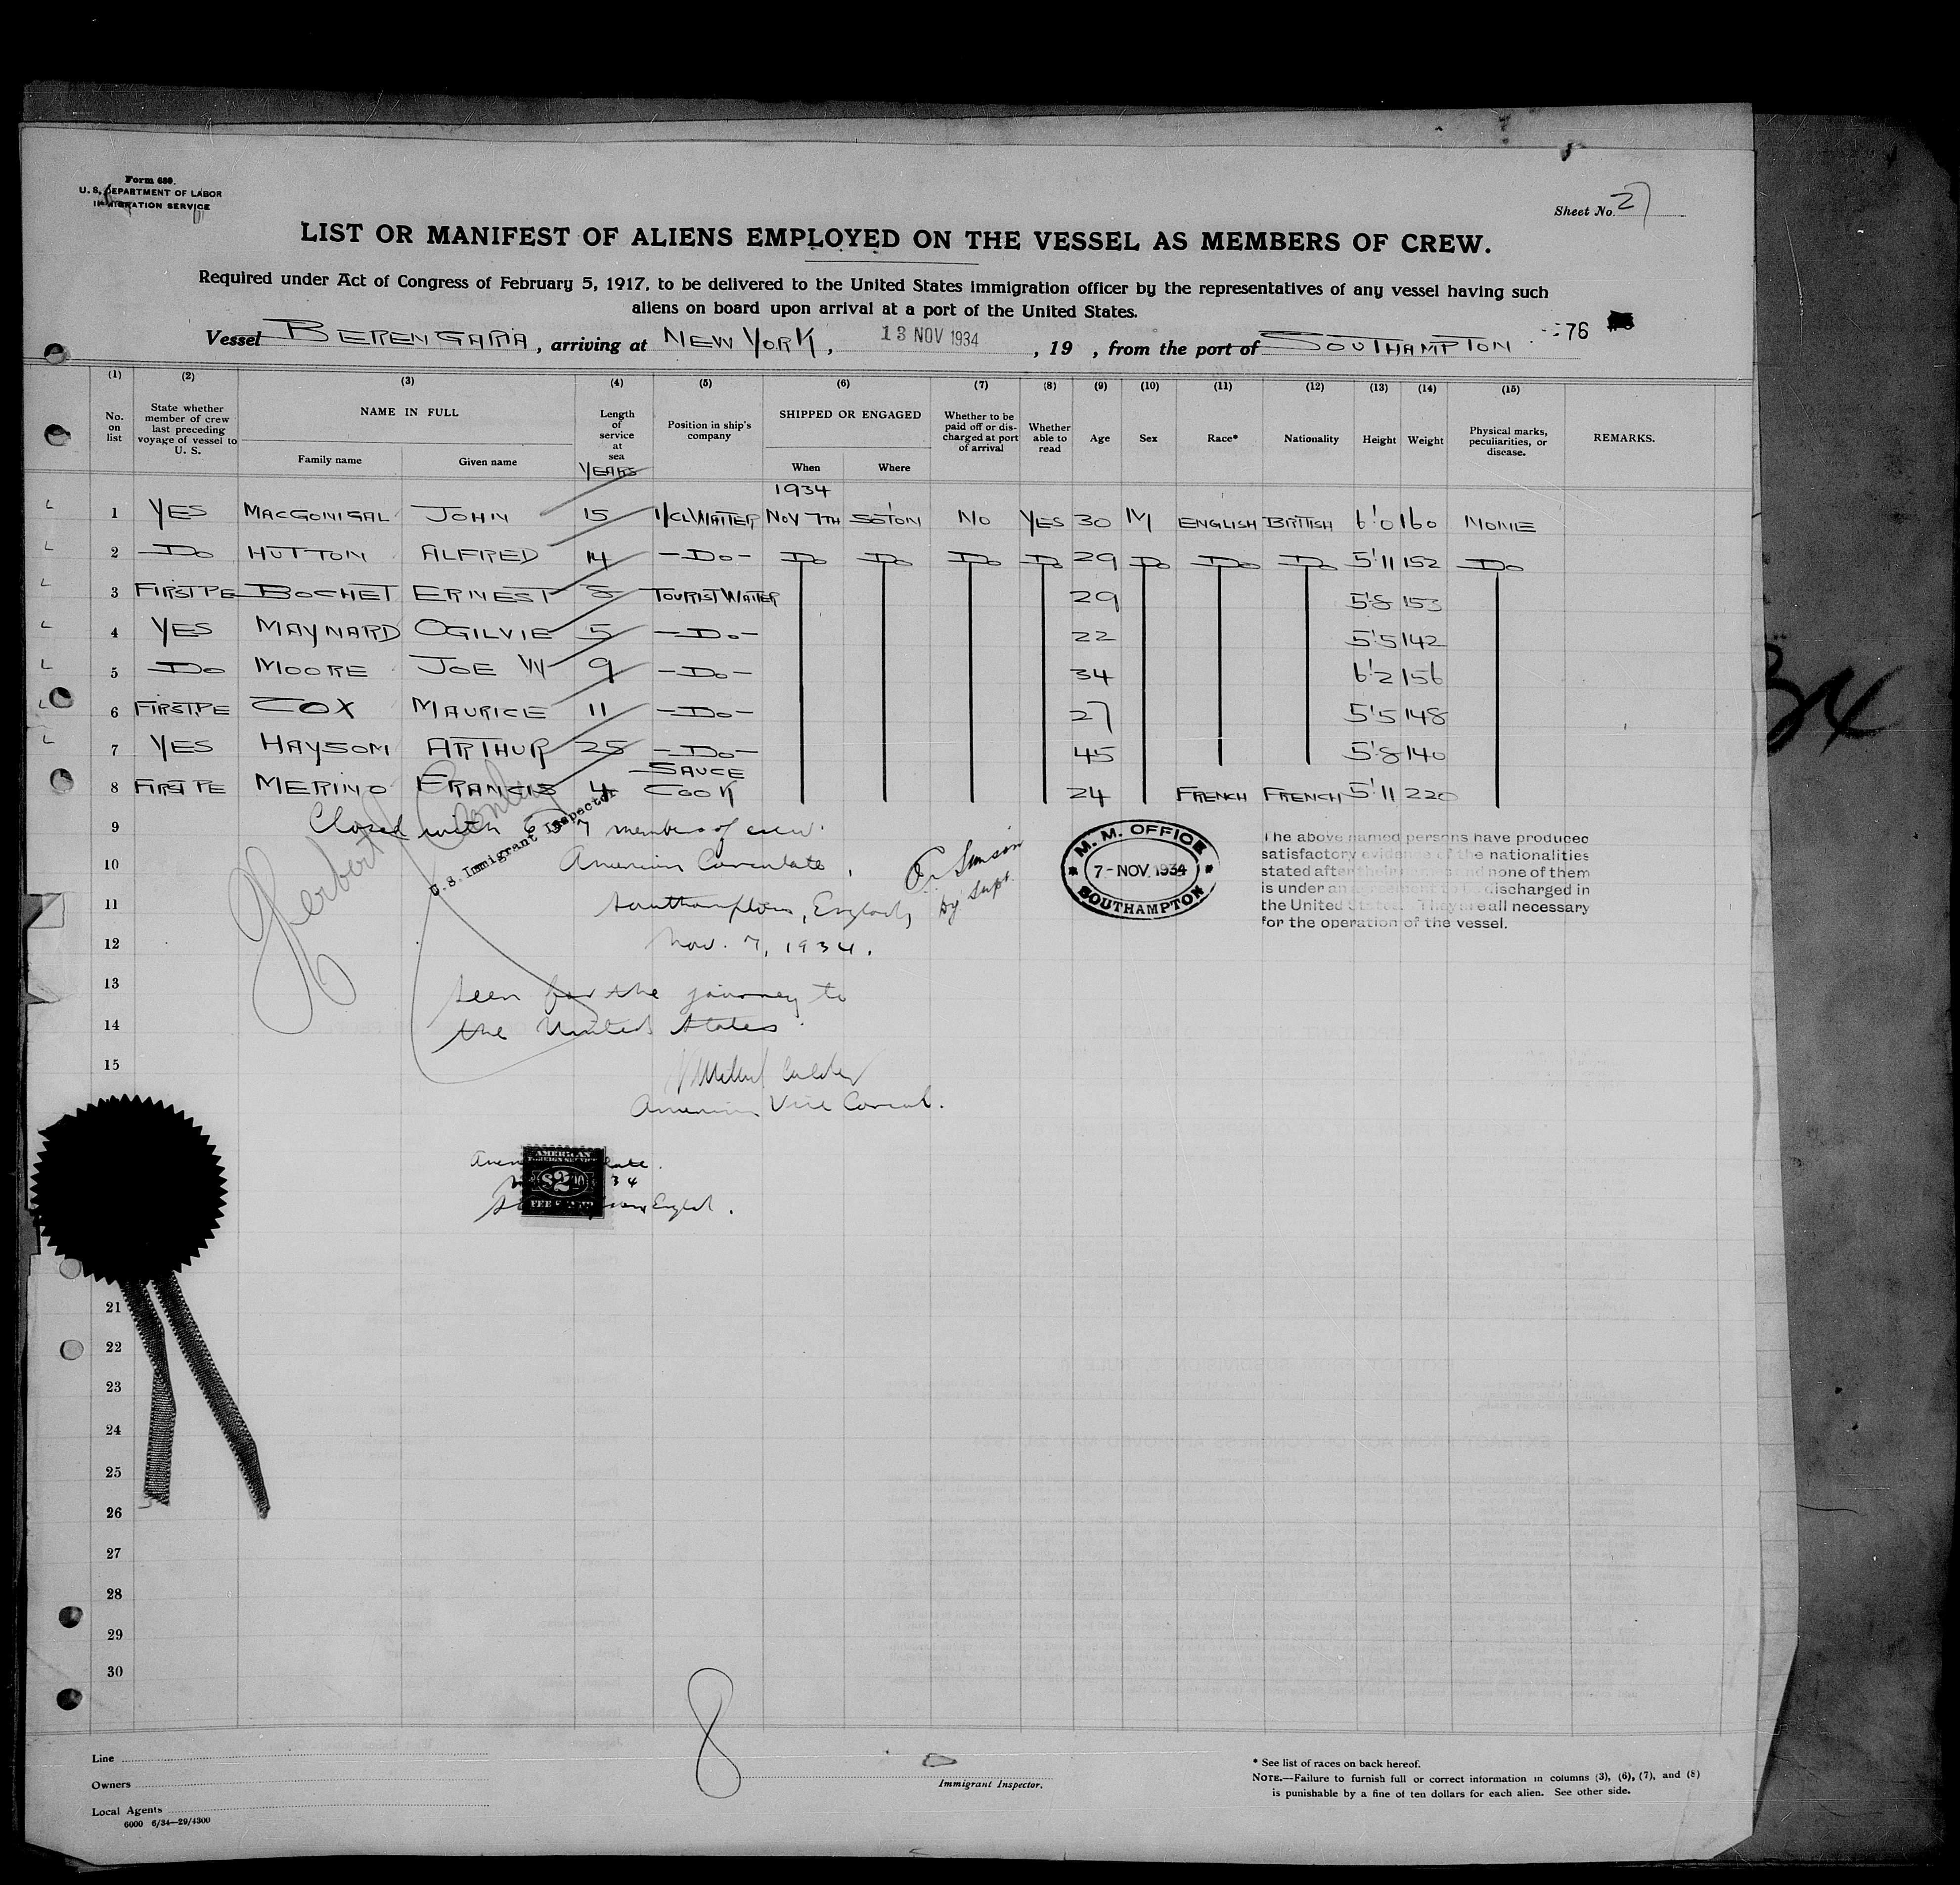 Form 680.
U. S. DEPARTMENT OF LABOR
IMMIGRATION SERVICE
Sheet No. 27
LIST OR MANIFEST OF ALIENS EMPLOYED ON THE VESSEL AS MEMBERS OF CREW.
Required under Act of Congress of February 5, 1917, to be delivered to the United States immigration officer by the representatives of any vessel having such
aliens on board upon arrival at a port of the United States.
Vessel BERENGARIA, arriving at NEW YORK, 13 NOV 1934, 19 , from the port of SOUTHAMPTON 76
(1) (2) (3) (4) (5) (6) (7) (8) (9) (10) (11) (12) (13) (14) (15)
No. on list State whether member of crew last preceding voyage of vessel to U. S. NAME IN FULL Family name Given name Length of service at sea YEARS Position in ship's company SHIPPED OR ENGAGED When Where Whether to be paid off or discharged at port of arrival Whether able to read Age Sex Race* Nationality Height Weight Physical marks, peculiarities, or disease. REMARKS.
1934
1 YES MACGONIGAL JOHN 15 1/CL WAITER NOV 7TH SOTON NO YES 30 M ENGLISH BRITISH 6'0 160 NONE
2 Do HUTTON ALFRED 14 -Do- Do Do Do Do 29 Do Do Do 5'11 152 Do
3 FIRST PE BOCHET ERNEST TOURIST WAITER 29 5'8 153
4 YES MAYNARD OGILVIE 5 -Do- 22 5'5 142
5 Do MOORE JOE W 9 -Do- 34 6'2 156
6 FIRST PE COX MAURICE 11 -Do- 27 5'5 148
7 YES HAYSOM ARTHUR 25 -Do- 45 5'8 140
8 FIRST PE MERINO FRANCIS 4 SAUCE COOK 24 FRENCH FRENCH 5'11 220
9 Closed with members of crew.
10 American Consulate,
11 Southampton, England,
12 Nov. 7, 1934.
Herbert
U. S. Immigrant Inspector
Dy Supt.
M. M. OFFICE
7-NOV.1934
SOUTHAMPTON
The above named persons have produced
satisfactory evidence of the nationalities
stated after their names and none of them
is under an agreement to be discharged in
the United States. They are all necessary
for the operation of the vessel.
13 Seen for the journey to
14 the United States
15
American Vice Consul.
AMERICAN
FOREIGN SERVICE
$2
FEE STAMP
34
England.
21
22
23
24
25
26
27
28
29
30
8
Line
Owners
Local Agents
6000 6/34—29/4300
Immigrant Inspector.
* See list of races on back hereof.
NOTE.—Failure to furnish full or correct information in columns (3), (6), (7), and (8)
is punishable by a fine of ten dollars for each alien. See other side.
34